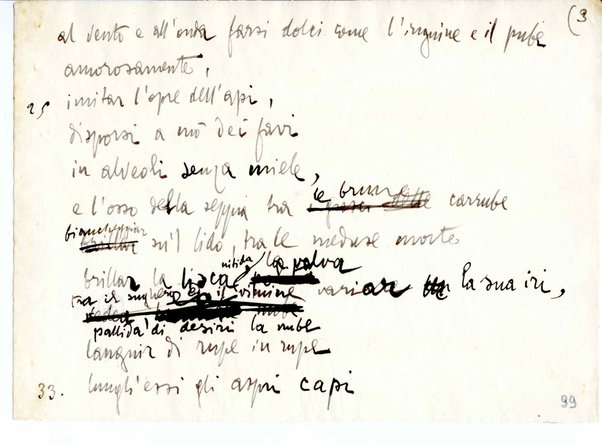 (3
al vento e all'onda farsi dolci come l'inguine e il pube
amorosamente,
25 imitar l'opre dell'api,
disporsi a mo' dei favi
in alveoli senza miele,
e l'osso della seppia tra le brune carrube
biancheggiar su 'l lido, tra le meduse morte
brillar la lisca nitida, la valva
tra il sughero ed il vimine variar la sua iri,
pallida di desiri la nube
languir di rupe in rupe
33. lungh'essi gli aspri capi
99